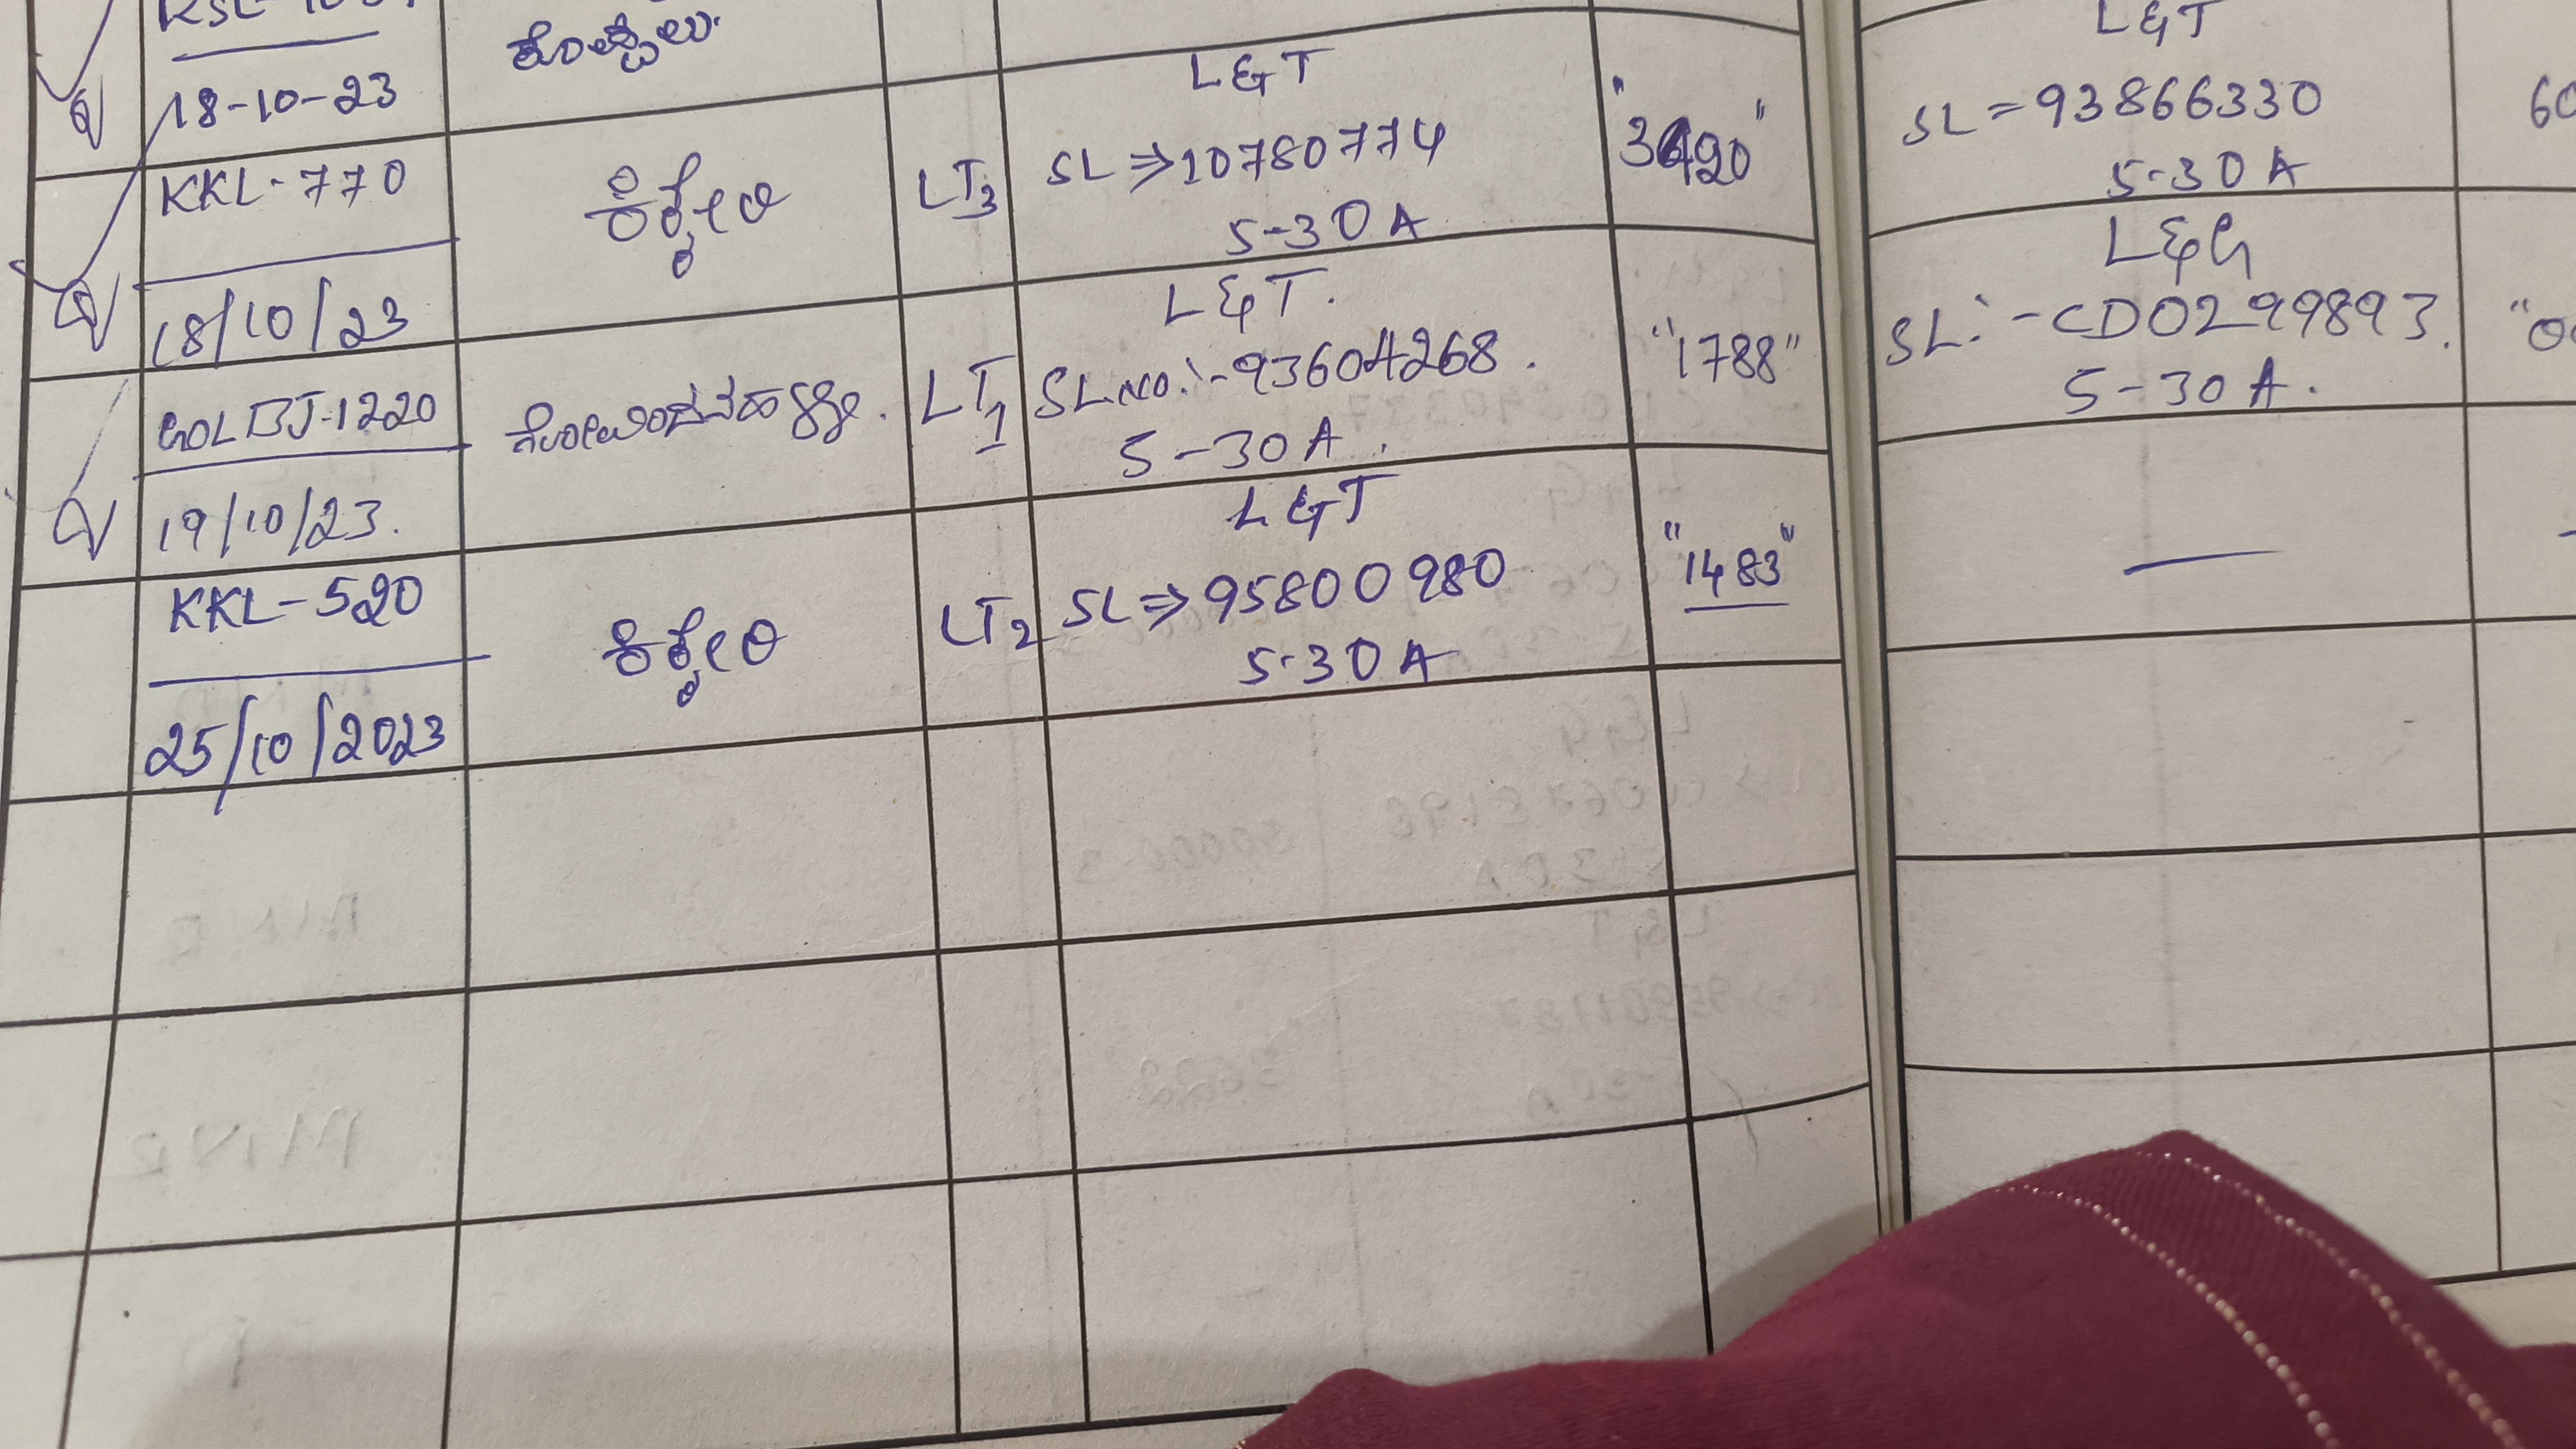 18-10-23
L&T
L&T
SL=93866330
5-30A
KKL-770
18/10/23
ಕಿಕ್ಕೇರಿ
LT3
SL⇒10780774
5-30A
L&G
SL:-CD0299893.
5-30A.
GOLBJ-1220
19/10/23.
ಗೋವಿಂದನಹಳ್ಳಿ.
LT1
L&T.
SLNO:-93604268.
5-30A.
"1788"
KKL-520
25/10/2023
ಕಿಕ್ಕೇರಿ
LT2
L&T
SL⇒95800980
5-30A
"1483"